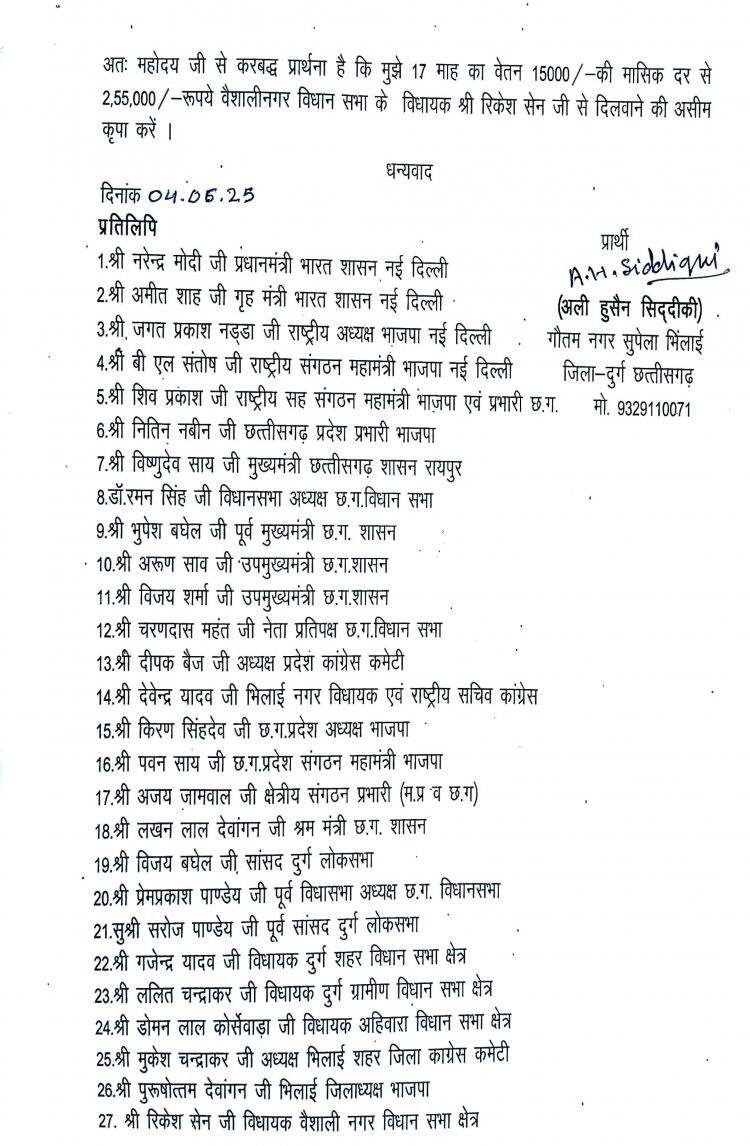 अतः महोदय जी से करबद्ध प्रार्थना है कि मुझे 17 माह का वेतन 15000/–की मासिक दर से
2,55,000/–रूपये वैशालीनगर विधान सभा के विधायक श्री रिकेश सेन जी से दिलवाने की असीम
कृपा करें ।
धन्यवाद
दिनांक 04.06.25
प्रतिलिपि
प्रार्थी
A.H.Siddiqui
(अली हुसैन सिद्दीकी)
गौतम नगर सुपेला भिंलाई
जिला–दुर्ग छत्तीसगढ़
मो. 9329110071
1.श्री नरेन्द्र मोदी जी प्रंधानमंत्री भारत शासन नई दिल्ली
2.श्री अमीत शाह जी गृह मंत्री भारत शासन नई दिल्ली
3.श्री जगत प्रकाश नड्डा जी राष्ट्रीय अध्यक्ष भाजपा नई दिल्ली
4.श्री बी एल संतोष जी राष्ट्रीय संगठन महामंत्री भाजपा नई दिल्ली
5.श्री शिव प्रकाश जी राष्ट्रीय सह संगठन महामंत्री भाजपा एवं प्रभारी छ.ग.
6.श्री नितिन नबीन जी छत्तीसगढ़ प्रदेश प्रभारी भाजपा
7.श्री विष्णुदेव साय जी मुख्यमंत्री छत्तीसगढ़ शासन रायपुर
8.डॉ.रमन सिंह जी विधानसभा अध्यक्ष छ.ग.विधान सभा
9.श्री भुपेश बघेल जी पूर्व मुख्यमंत्री छ.ग. शासन
10.श्री अरूण साव जी उपमुख्यमंत्री छ.ग.शासन
11.श्री विजय शर्मा जी उपमुख्यमंत्री छ.ग.शासन
12.श्री चरणदास महंत जी नेता प्रतिपक्ष छ.ग.विधान सभा
13.श्री दीपक बैज जी अध्यक्ष प्रदेश कांग्रेस कमेटी
14.श्री देवेन्द्र यादव जी भिलाई नगर विधायक एवं राष्ट्रीय सचिव कांग्रेस
15.श्री किरण सिंहदेव जी छ.ग.प्रदेश अध्यक्ष भाजपा
16.श्री पवन साय जी छ.ग.प्रदेश संगठन महामंत्री भाजपा
17.श्री अजय जामवाल जी क्षेत्रीय संगठन प्रभारी (म.प्र व छ.ग)
18.श्री लखन लाल देवांगन जी श्रम मंत्री छ.ग. शासन
19.श्री विजय बघेल जी सांसद दुर्ग लोकसभा
20.श्री प्रेमप्रकाश पाण्डेय जी पूर्व विधासभा अध्यक्ष छ.ग. विधानसभा
21.सुश्री सरोज पाण्डेय जी पूर्व सांसद दुर्ग लोकसभा
22.श्री गजेन्द्र यादव जी विधायक दुर्ग शहर विधान सभा क्षेत्र
23.श्री ललित चन्द्राकर जी विधायक दुर्ग ग्रामीण विधान सभा क्षेत्र
24.श्री डोमन लाल कोर्सेवाड़ा जी विधायक अहिवारा विधान सभा क्षेत्र
25.श्री मुकेश चन्द्राकर जी अध्यक्ष भिलाई शहर जिला काग्रेस कमेटी
26.श्री पुरूषोत्तम देवांगन जी भिलाई जिलाध्यक्ष भाजपा
27. श्री रिकेश सेन जी विधायक वैशाली नगर विधान सभा क्षेत्र